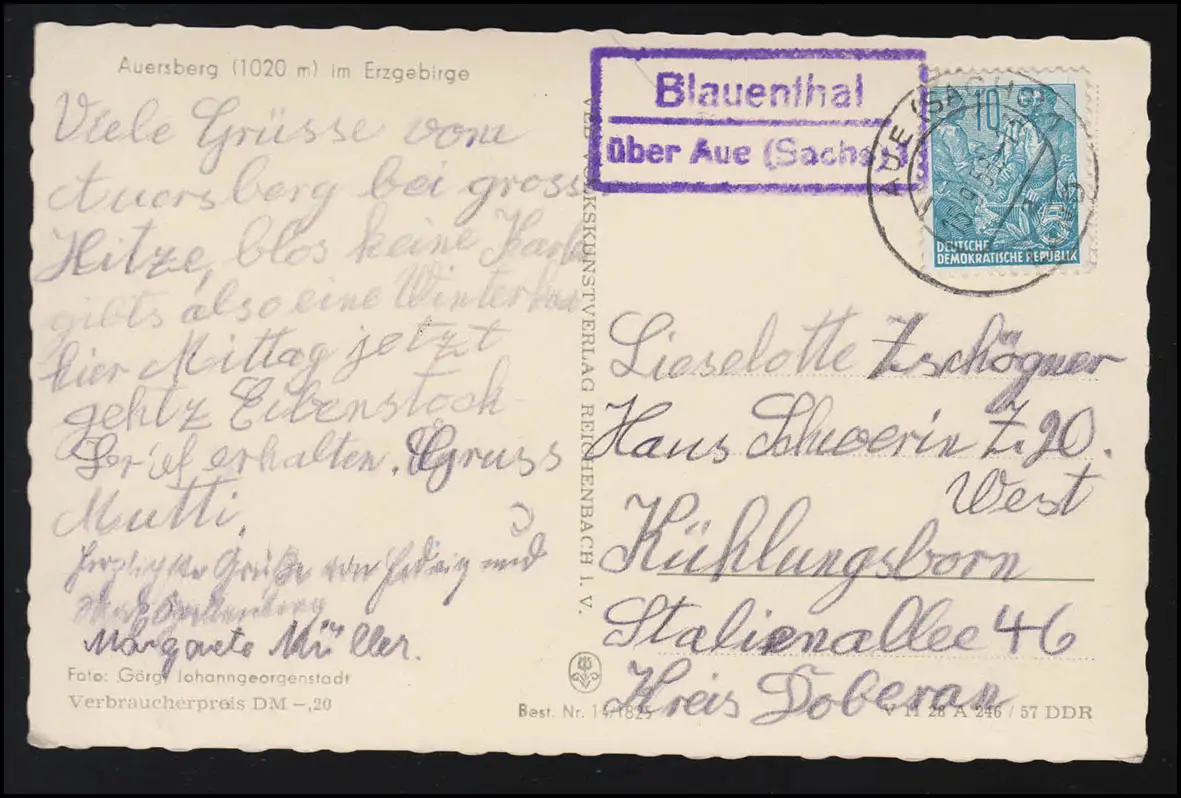 Auersberg (1020 m) im Erzgebirge
Viele Grüsse vom
Auersberg bei gross
Hitze, blos keine Karte
gibts also eine Winterkar
hier Mittag jetzt
gehtz Eibenstock
Brief erhalten. Gruss
Mutti.
Herzliche Grüße von Hedwig und
Margarete Müller.
Foto: Görg, Johanngeorgenstadt
Verbraucherpreis DM –,20
Best. Nr. 14/1825
VEB VOLKSKUNSTVERLAG REICHENBACH I. V.
Blauenthal
über Aue (Sachs)
AUE (SACHS)
10
DEUTSCHE
DEMOKRATISCHE REPUBLIK
Lieselotte Zschögner
Haus Schwerin Z. 20.
West
Kühlungsborn
Stalienallee 46
Kreis Doberan
V 11 28 A 246 / 57 DDR